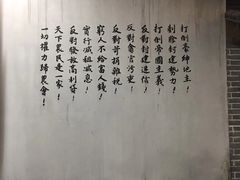 打倒豪紳地主！
剷除封建勢力！
打倒帝國主義！
反對封建迷信！
反對貪官污吏！
反對苛捐雜稅！
窮人不給富人錢！
實行減租減息！
反對發放高利貸！
天下農民是一家！
一切權力歸農會！